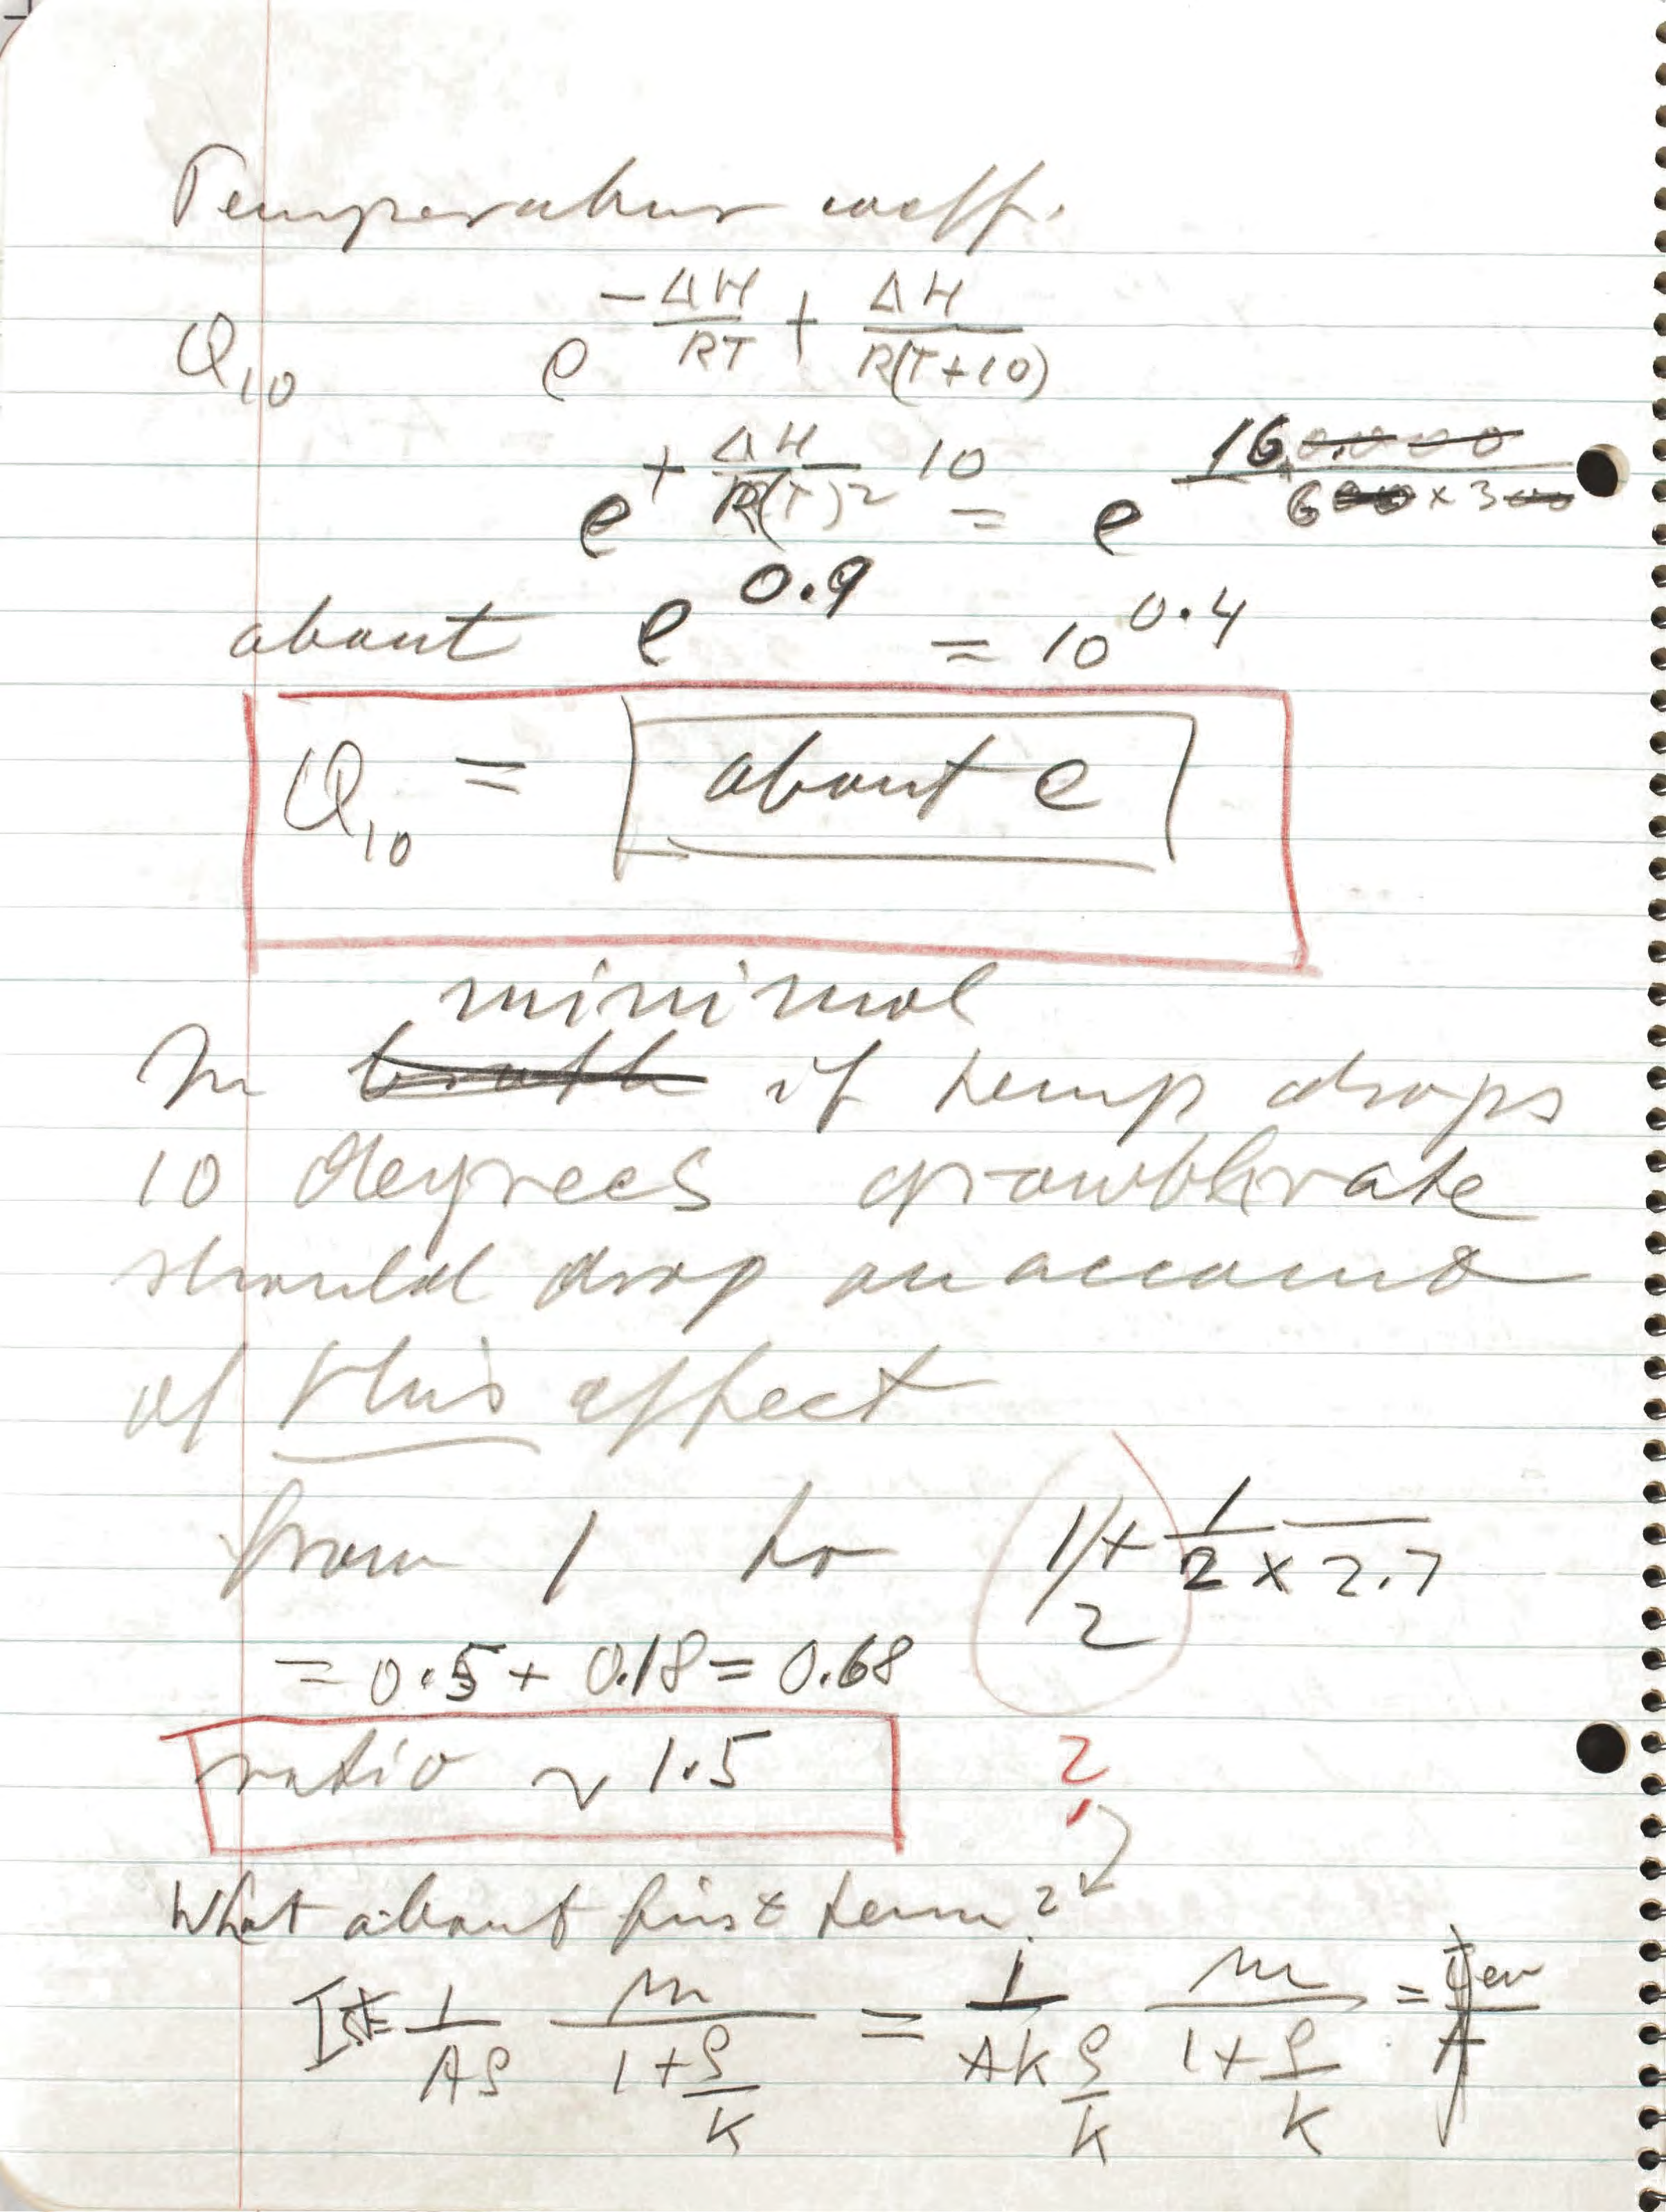 Temperature coeff.
Q₁₀ e^(-ΔH/RT + ΔH/R(T+10))
e^(+ΔH/R(T)² 10) = e^(160.000/600 x 300)
about e^0.9 = 10^0.4
Q₁₀ = about e
minimal
In broth if temp drops
10 degrees growth rate
should drop on account
of this effect
from 1 to 1/2 + 1/(2 x 2.7)
= 0.5 + 0.18 = 0.68
ratio ~ 1.5 2
What about first term?
= 1/(Aρ) m/(1+ρ/K) = 1/(AK ρ/K) m/(1+ρ/K) =